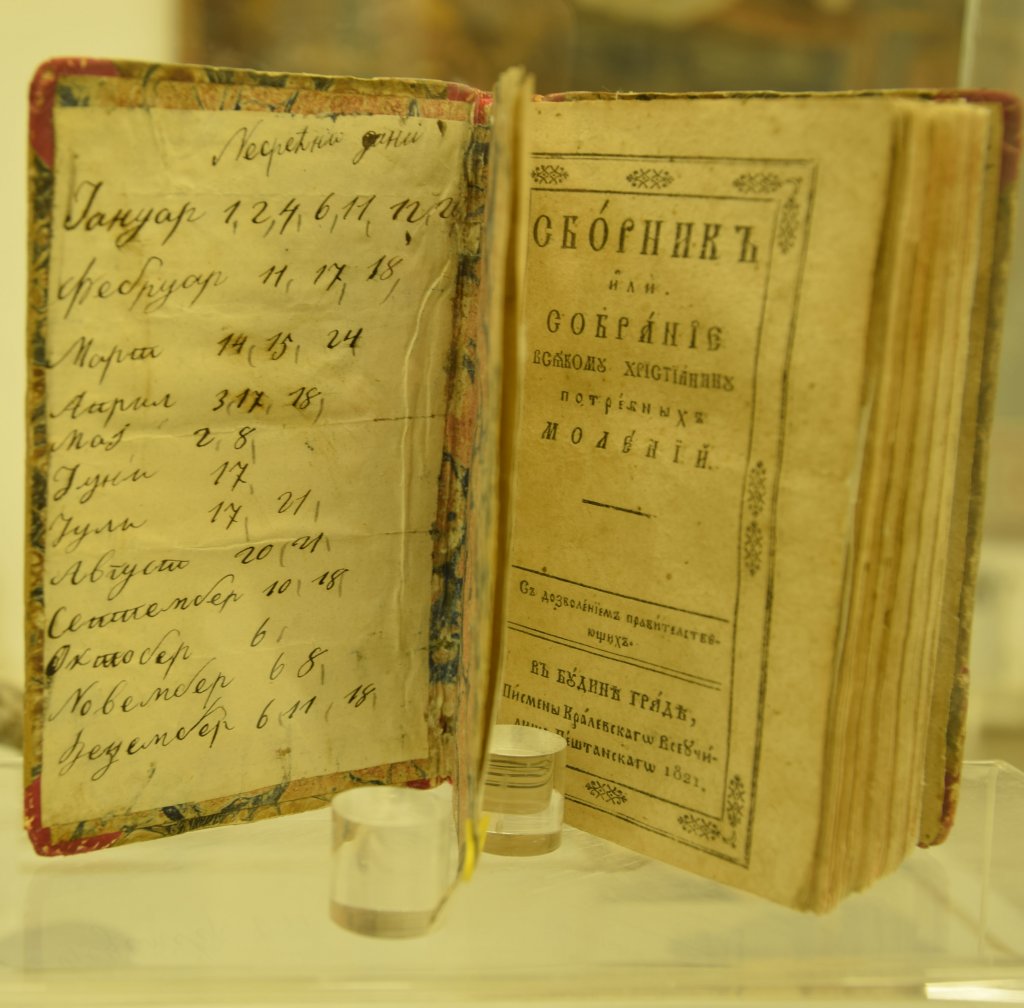 Несрећни дани
Јануар 1, 2, 4, 6, 11, 12, 20
Фебруар 11, 17, 18,
Март 14, 15, 24
Април 3, 17, 18,
Мај 2, 8,
Јуни 17,
Јули 17, 21,
Август 20, 21,
Септембер 10, 18,
Октобер 6,
Новембер 6 8,
Децембер 6, 11, 18,
СБО́РНИКЪ
и҆лѝ.
СОБРА́НЇЕ
ВСѦ́КОМꙊ ХРІСТЇА́НИНꙊ
ПОТРЕ́БНЫХЪ
МОЛЕ́НЇЙ.
Съ дозволе́нїемъ прави́телствѹ-
ющихъ.
ВЪ БꙊ́ДИНѢ ГРА́ДѢ,
Пи́смены Кра́левскагѡ Всеꙋчи́-
лища Пе́штанскагѡ 1821.